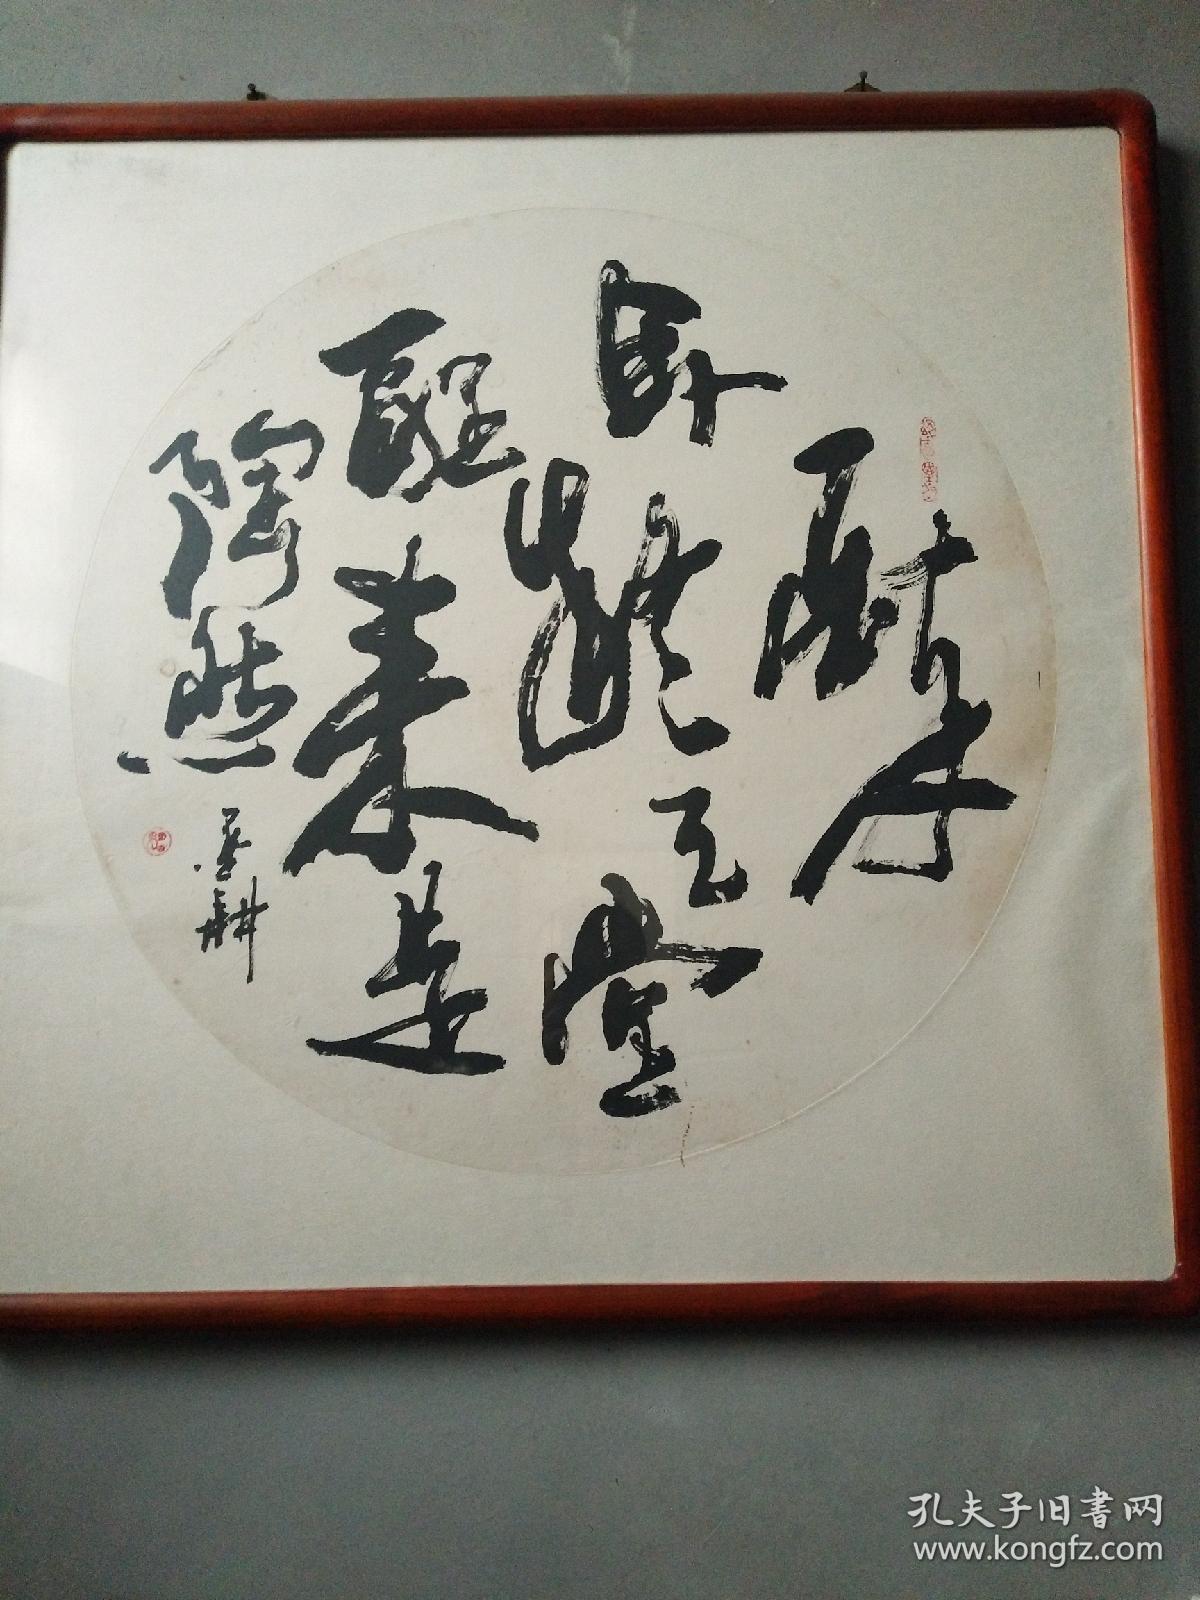 醉
卧疑天堂
醒来是
陶然
墨耕
孔夫子旧书网
www.kongfz.com